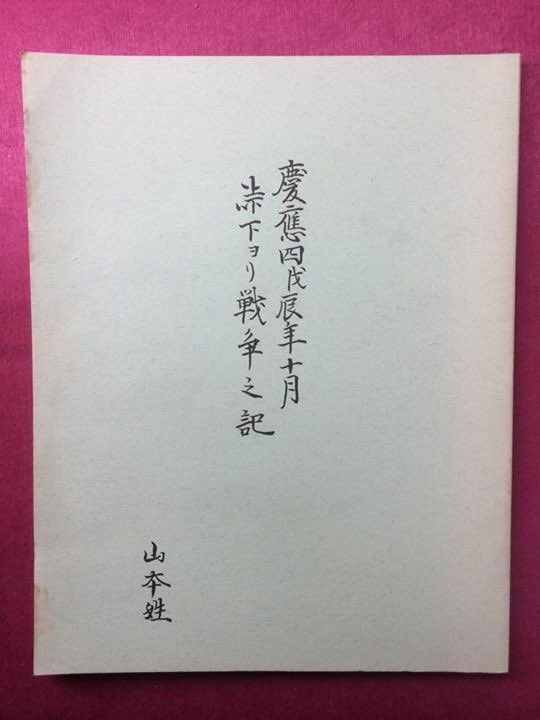 慶應四戊辰年十月
峠下ヨリ戦争之記
山本姓